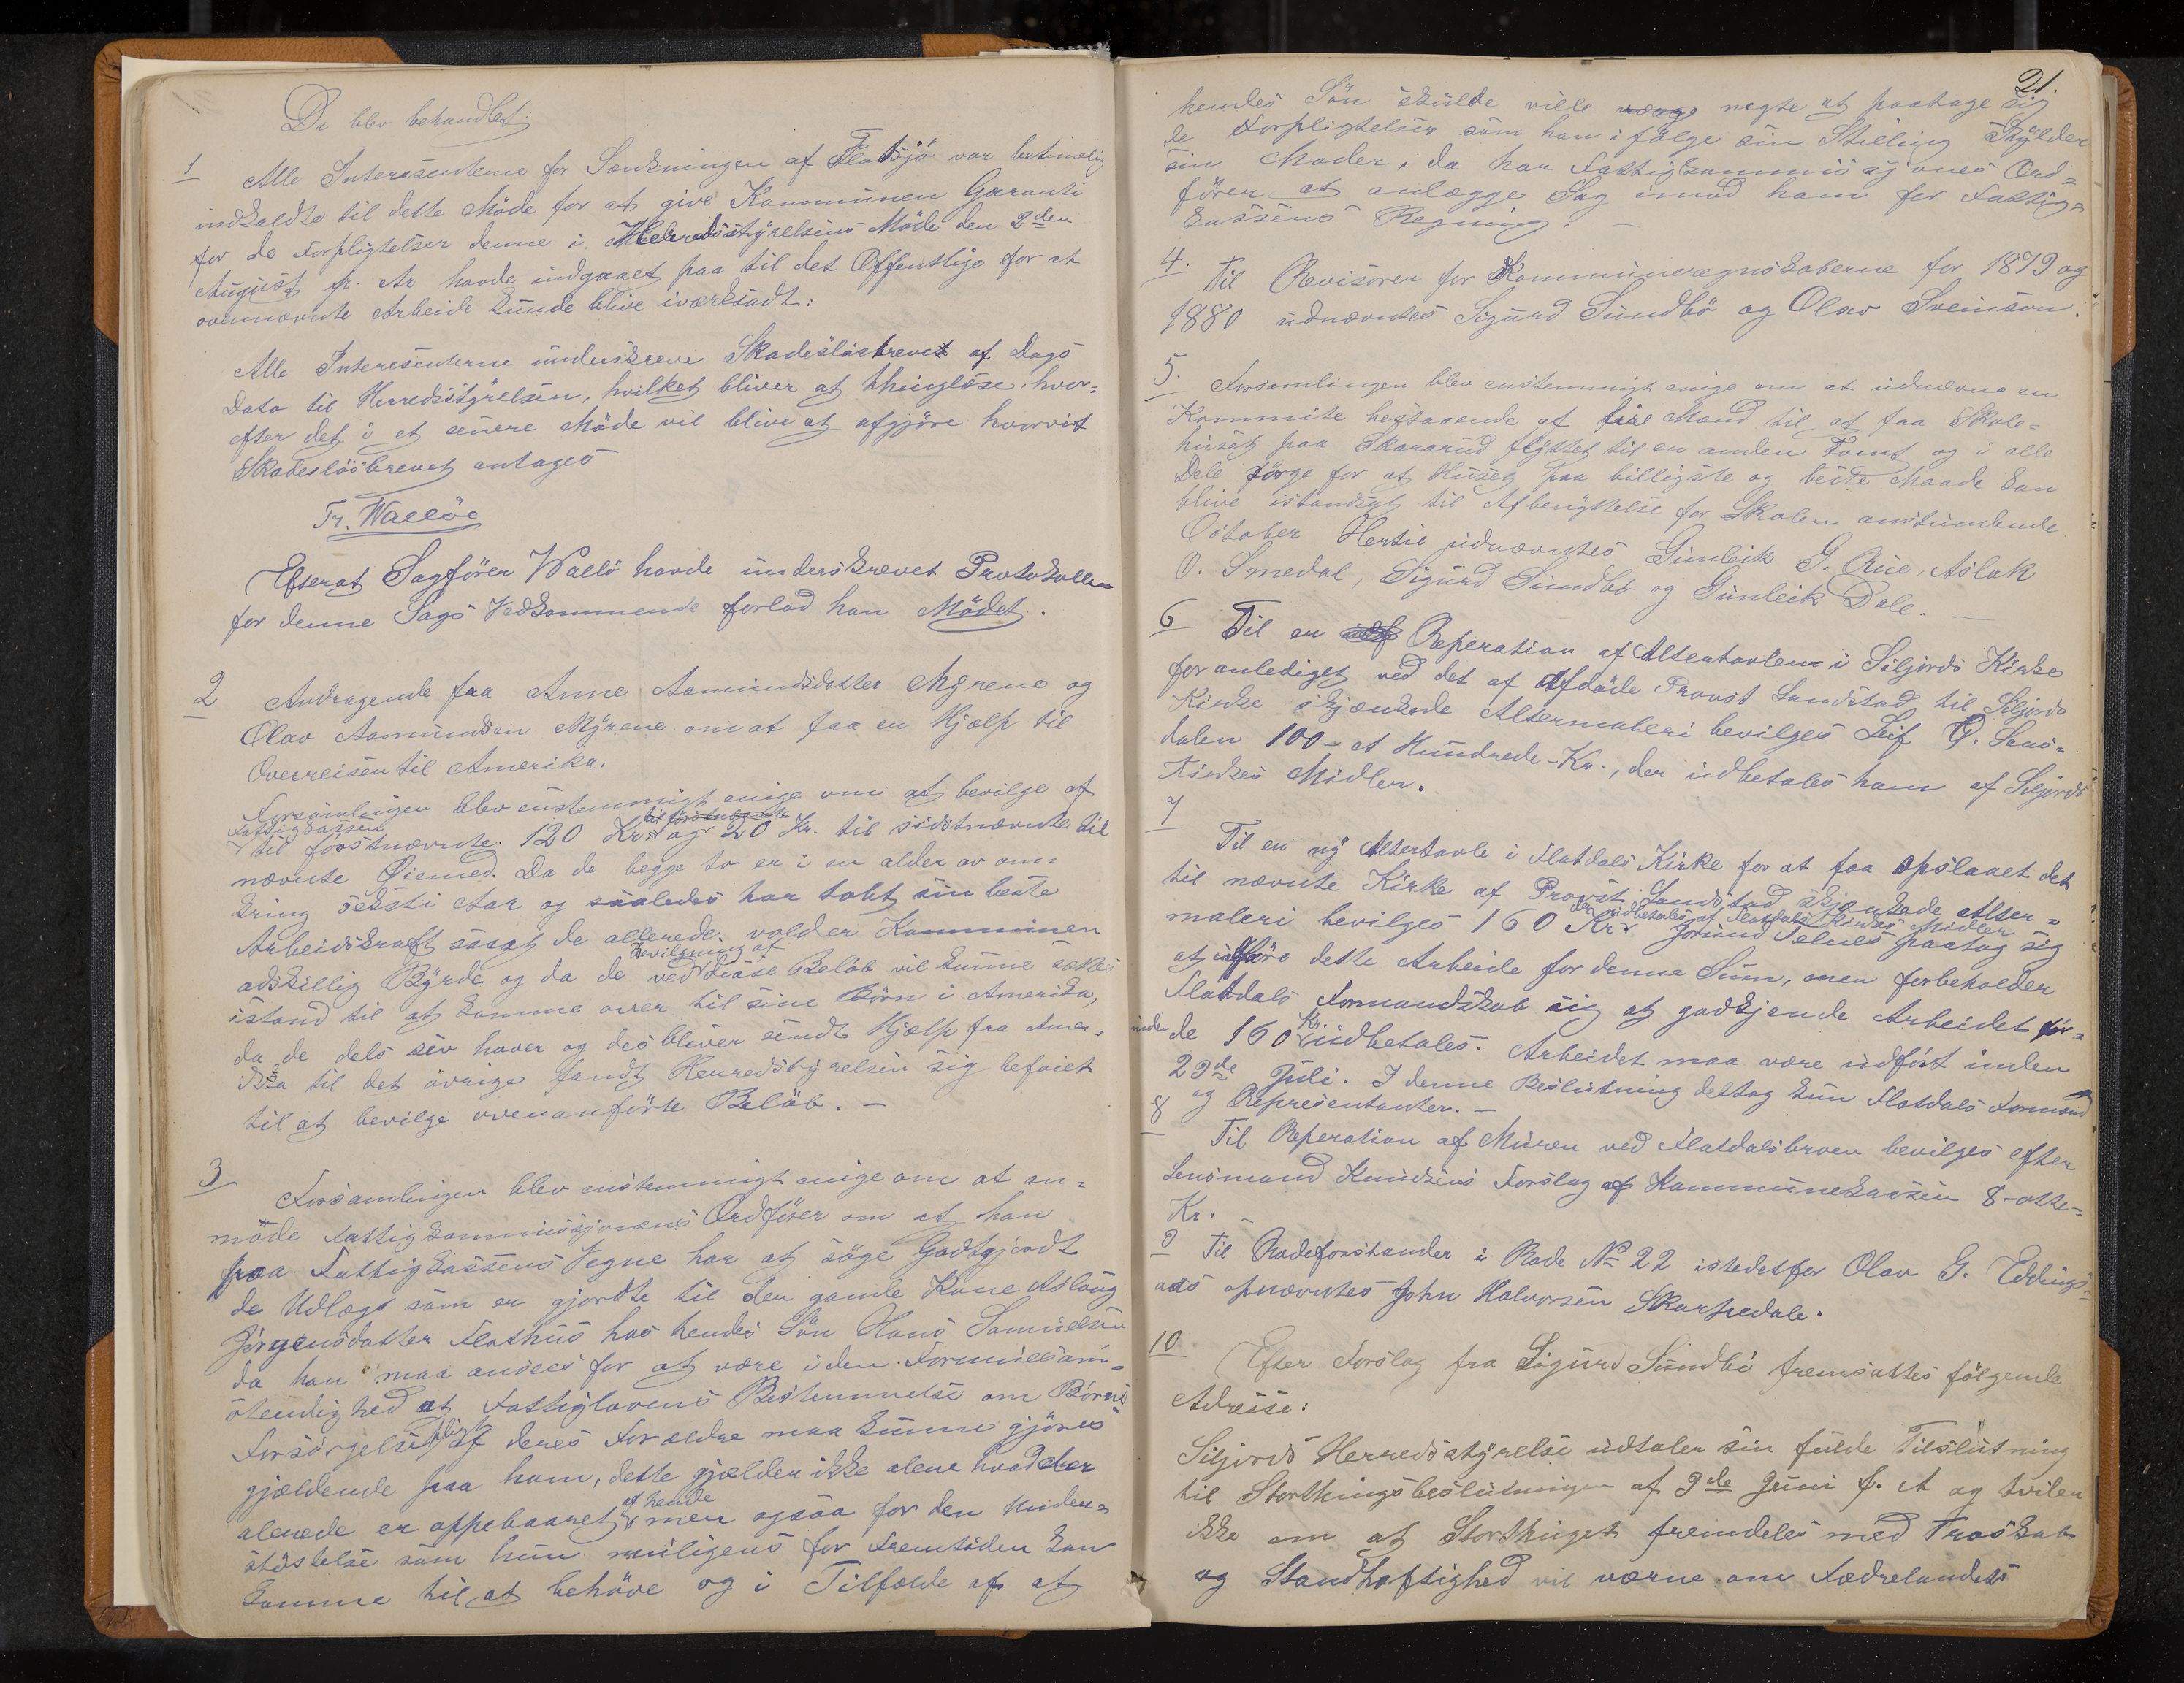 Da blev behandlet:
1 Alle Interesenterne for Sænkningen af Flatsjö var betimelig
indkaldte til dette Möde for at give Kommunen Garanti
for de Forpligtelser denne i Herredsstyrelsens Möde den 2den
August f. Ar havde indgaaet paa til det Offentlige for at
ovennævnte Arbeide kunde blive iværksadt:
Alle Interesenterne underskrev Skadeslösbrevet af Dags
Dato til Herredsstyrelsen, hvilket bliver at thinglæse. hvor=
efter det i et senere Möde vil blive at afgjöre hvorvit
Skadeslösbrevet antages
Tr. Wallöe
Efterat Sagförer Wallö havde underskrevet Protokollen
for denne Sags Vedkommende forlod han Mödet.
2 Andragende fra Anne Aamundsdatter Myrene og
Olav Aamundsen Myrene om at faa en Hjælp til
Overreisen til Amerika.
Forsamlingen blev enstemmigt enige om at bevilge af
Fattigkassen
til förstnævnte. 120 Kr. og 20 Kr. til sidstnævnte til
nævnte Øiemed. Da de begge to er i en alder av om=
kring seksti Aar og saaledes har tabt sin beste
Arbeidskraft saaat de allerede volder Kommunen
adskillig Byrde og da de ved Bevilgning af disse Beløb vil kunne sættes
istand til at komme over til sine Börn i Amerika,
da de dels selv haver og dels bliver sendt Hjælp fra Amer=
ika til det övrige fandt Herredstyrelsen sig beføiet
til at bevilge ovenanförte Belöb. —
3 Forsamlingen blev enstemmigt enige om at an=
möde Fattigkommissjonens Ordförer om at han
paa Fattigkassens Vegne har at söge Godtgjordt
de Udlæg som er gjordte til den gamle Kone Aslaug
Jörgensdatter Flathus hos hendes Sön Hans Samuelsen
da han maa ansees for at være i den Formuesom=
stendighed at Fattiglovens Bestemmelse om Börns
Forsörgelsespligt af deres Forældre maa kunne gjöres
gjældende paa ham, dette gjælder ikke alene hvad der
alerede er oppebaaret af hende men ogsaa for den Under=
stöstelse som hun muligens for Fremtiden kan
komme til at behöve og i Tilfælde af at
21.
hendes Sön skulde ville negte at paatage sig
de Forpligtelser som han i fölge sin Stilling skylder
sin Moder, da har Fattigkommissjones Ord=
förer at anlægge Sag imod ham for Fattig=
kassens Regning. —
4. Til Revisorer for Kommuneregnskaberne for 1879 og
1880 udnævntes Sigurd Sundbö og Olav Sveinson.
5. Forsamlingen blev enstemmigt enige om at udnævne en
Kommite bestaaende af fire Mænd til at faa Skole=
huset paa Skararud flyttet til en anden Tomt og i alle
Dele sörge for at Huset paa billigste og beste Maade kan
blive istandsat til Afbenyttelse for Skolen anstundende
October Hertil udnævntes Gunleik G. Rue, Aslak
O. Smedal, Sigurd Sundbö og Gunleik Dale. —
6 Til en Reperation af Altertavlen i Siljords Kirke
foranlediget ved det af Afdöde Provst Landstad til Siljords
Kirke skjænkede Altermaleri bevilges Leif O. Sens=
dalen 100 - et Hundrede - Kr., der udbetales ham af Siljords
Kirkes Midler.
7
Til en ny Altertavle i Flatdals Kirke for at faa opslaaet det
til nævnte Kirke af Provst Landstad skjænkede Alter=
maleri bevilges 160 Kr. der udbetales af Flatdals Kirkes Midler Jorund Telnes paatog sig
at udføre dette Arbeide for denne Sum, men forbeholder
Flatdals Formandskab sig at godkjende Arbeidet för=
inden de 160 Kr. udbetales. Arbeidet maa være udfört inden
29de Juli. I denne Beslutning deltog kun Flatdals Formænd
og Representanter. —
8 Til Reperation af Muren ved Flatdalsbroen bevilges efter
Lensmand Knudsens Forslag af Kommunekassen 8 - otte -
Kr.
9 Til Rodeforstander i Rode No 22 istedetfor Olav G. Eddings=
aas opnævntes John Halvorsen Skarpedale.
10.
Efter Forslag fra Sigurd Sundbö fremsattes fölgende
Adresse:
Siljords Herredsstyrelse udtaler sin fulde Tilslutning
til Storthingsbeslutningen af 9de Juni f. A og tviler
ikke om at Storthinget fremdeles med Troskab
og Standhaftighed vil værne om Fædrelandets